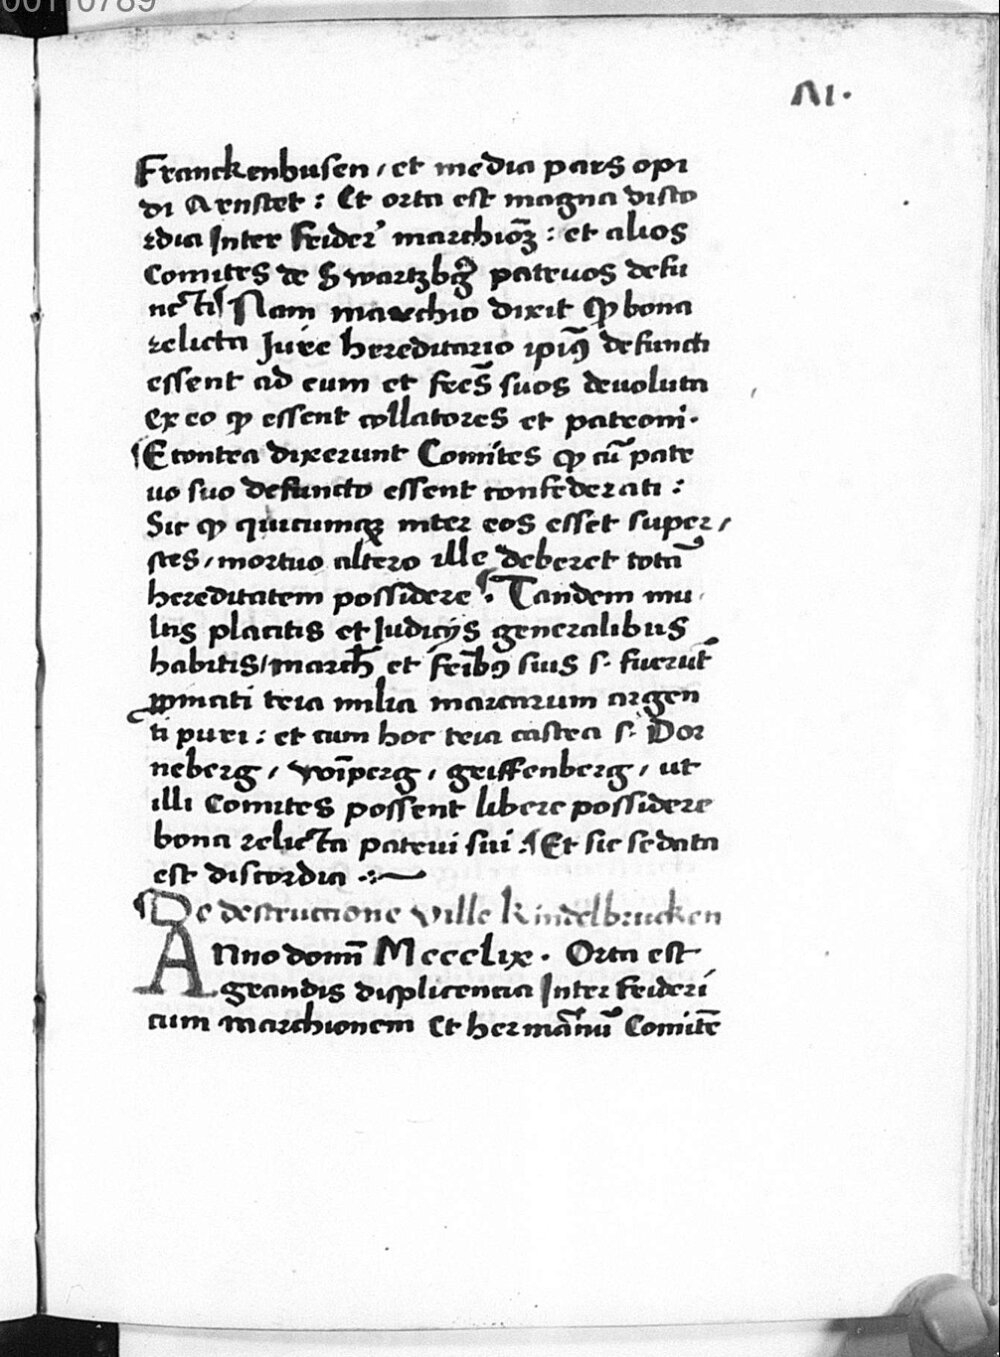 00110789
VI.
Franckenhusen / et media pars opi
di Arnstet : Et orta est magna disco
rdia Inter frider' marchio͞ꝫ : et alios
Comites de Swartzbg̃ patruos defu
ncti ¶ Nam marchio dixit ꝙ bona
relicta Jure hereditario ipiꝰ defuncti
essent ad eum et fres̃ suos deuoluta
Ex eo ꝙ essent collatores et patroni.
¶ E contra dixerunt Comites ꝙ cū patr
uo suo defuncto essent confederati :
Sic ꝙ quicumqꝫ inter eos esset super /
stes / mortuo altero ille deberet totā
hereditatem possidere : ¶ Tandem mu
ltis placitis et Judicijs generalibus
habitis / march̄ et fribꝰ suis s. fuerūt
ꝓmati tria milia marcarum argen
ti puri : et cum hoc tria castra s. Dor
neberg / wīperg / griffenberg / ut
illi Comites possent libere possidere
bona relicta patrui sui : ¶ Et sic sedata
est discordia .:~
¶ De destructione ville Kindelbrucken
Anno domī Mccclix . Orta est
grandis displicencia Inter frideri
cum marchionem Et hermānū Comitē